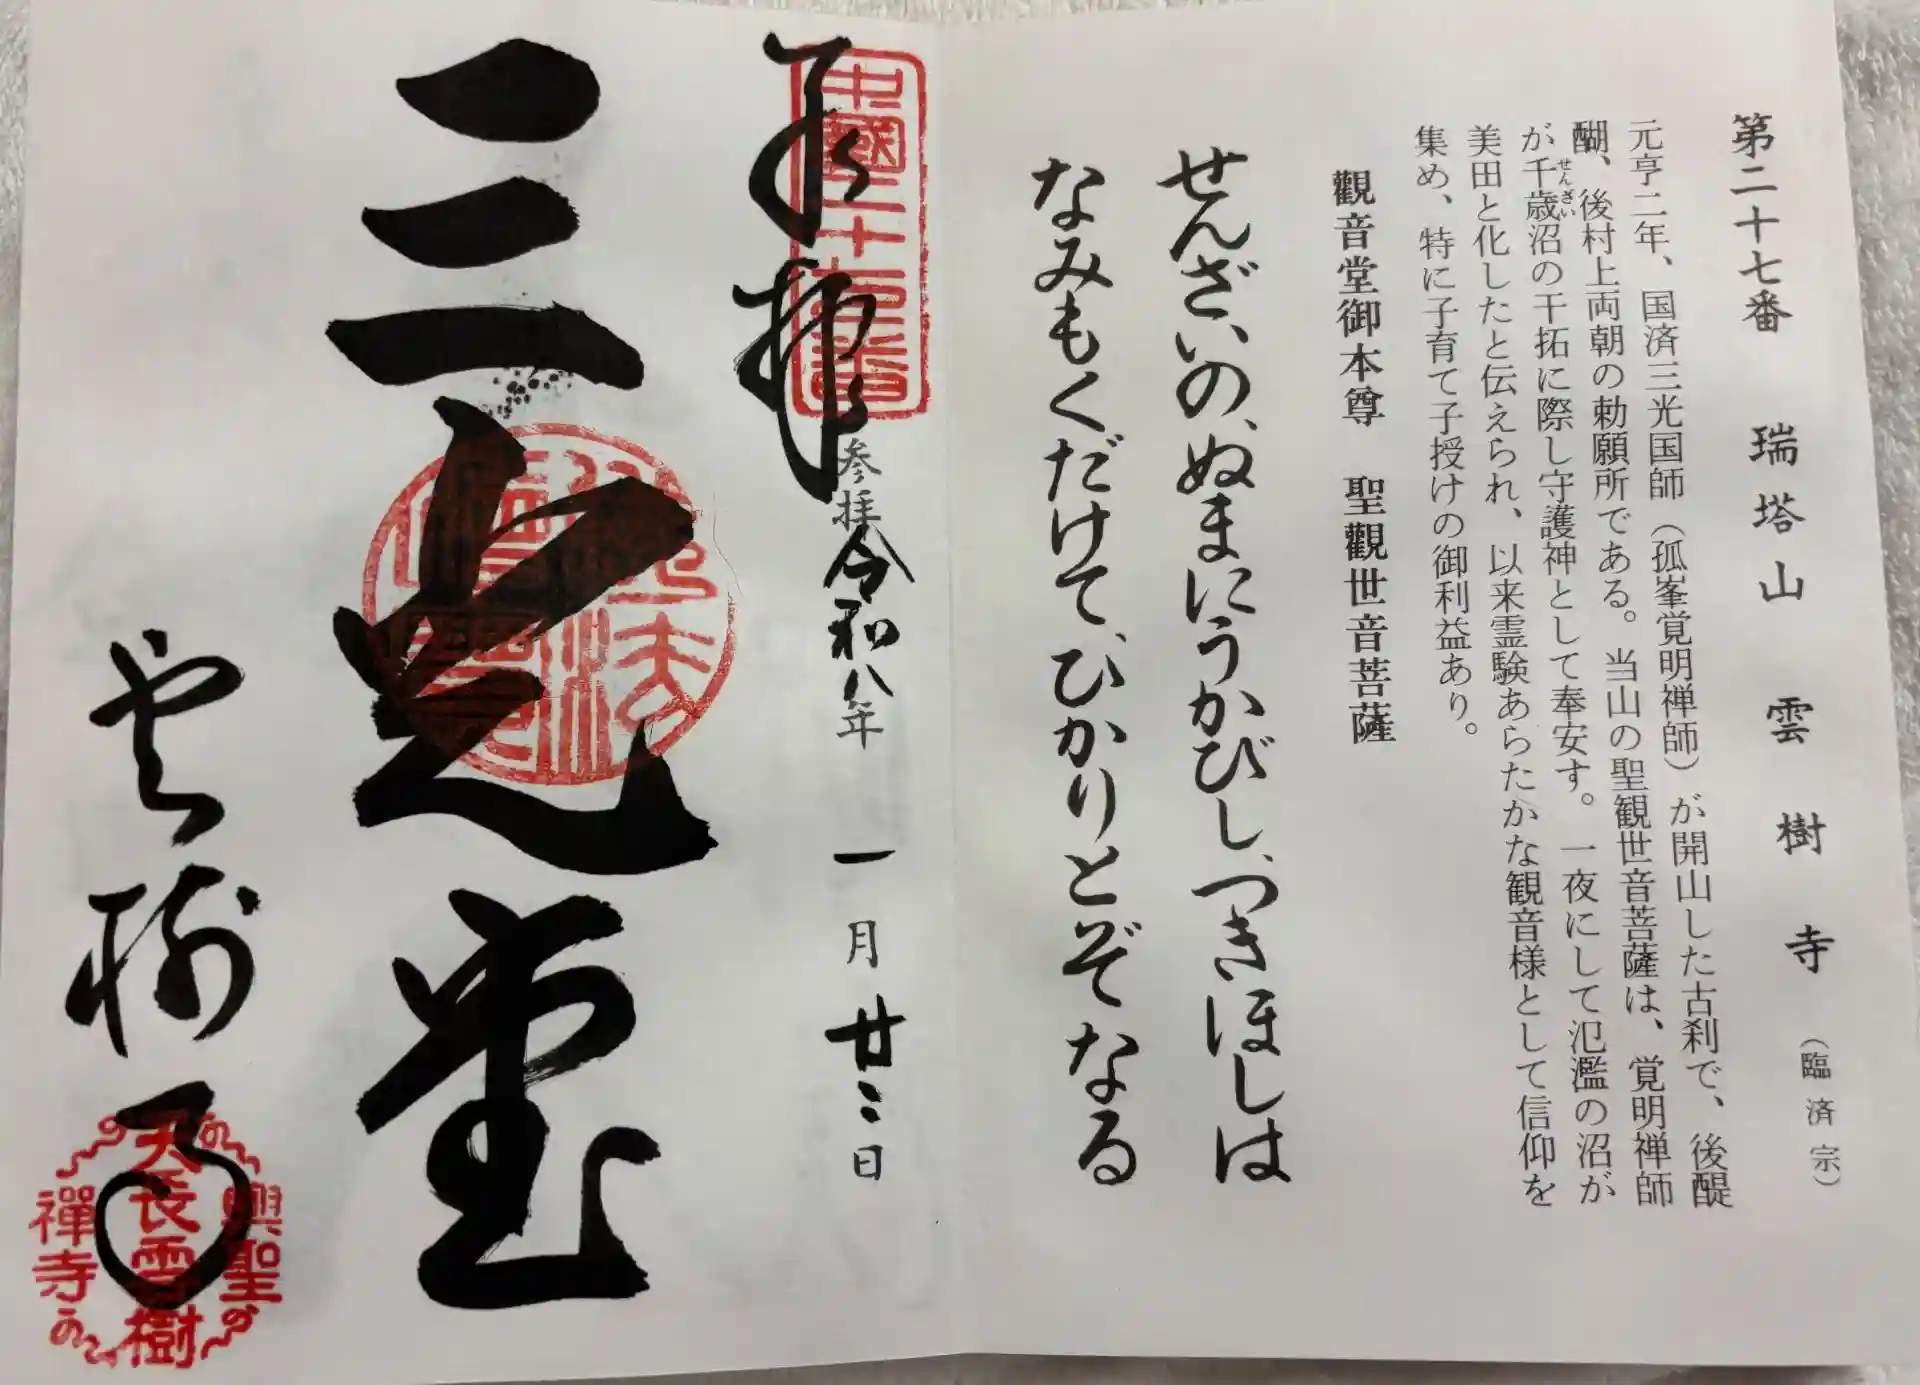 第二十七番　瑞塔山　雲樹寺（臨済宗）
元亨二年、国済三光国師（孤峯覚明禅師）が開山した古刹で、後醍
醐、後村上両朝の勅願所である。当山の聖観世音菩薩は、覚明禅師
が千歳沼の干拓に際し守護神として奉安す。一夜にして氾濫の沼が
せんざい
美田と化したと伝えられ、以来霊験あらたかな観音様として信仰を
集め、特に子育て子授けの御利益あり。
觀音堂御本尊　聖觀世音菩薩
せんざいの、ぬまにうかびし、つきほしは
なみもくだけて、ひかりとぞなる
中國二十七番
奉拝
参拝令和八年一月廿二日
三光堂
雲樹寺
興聖
天長雲樹
禪寺